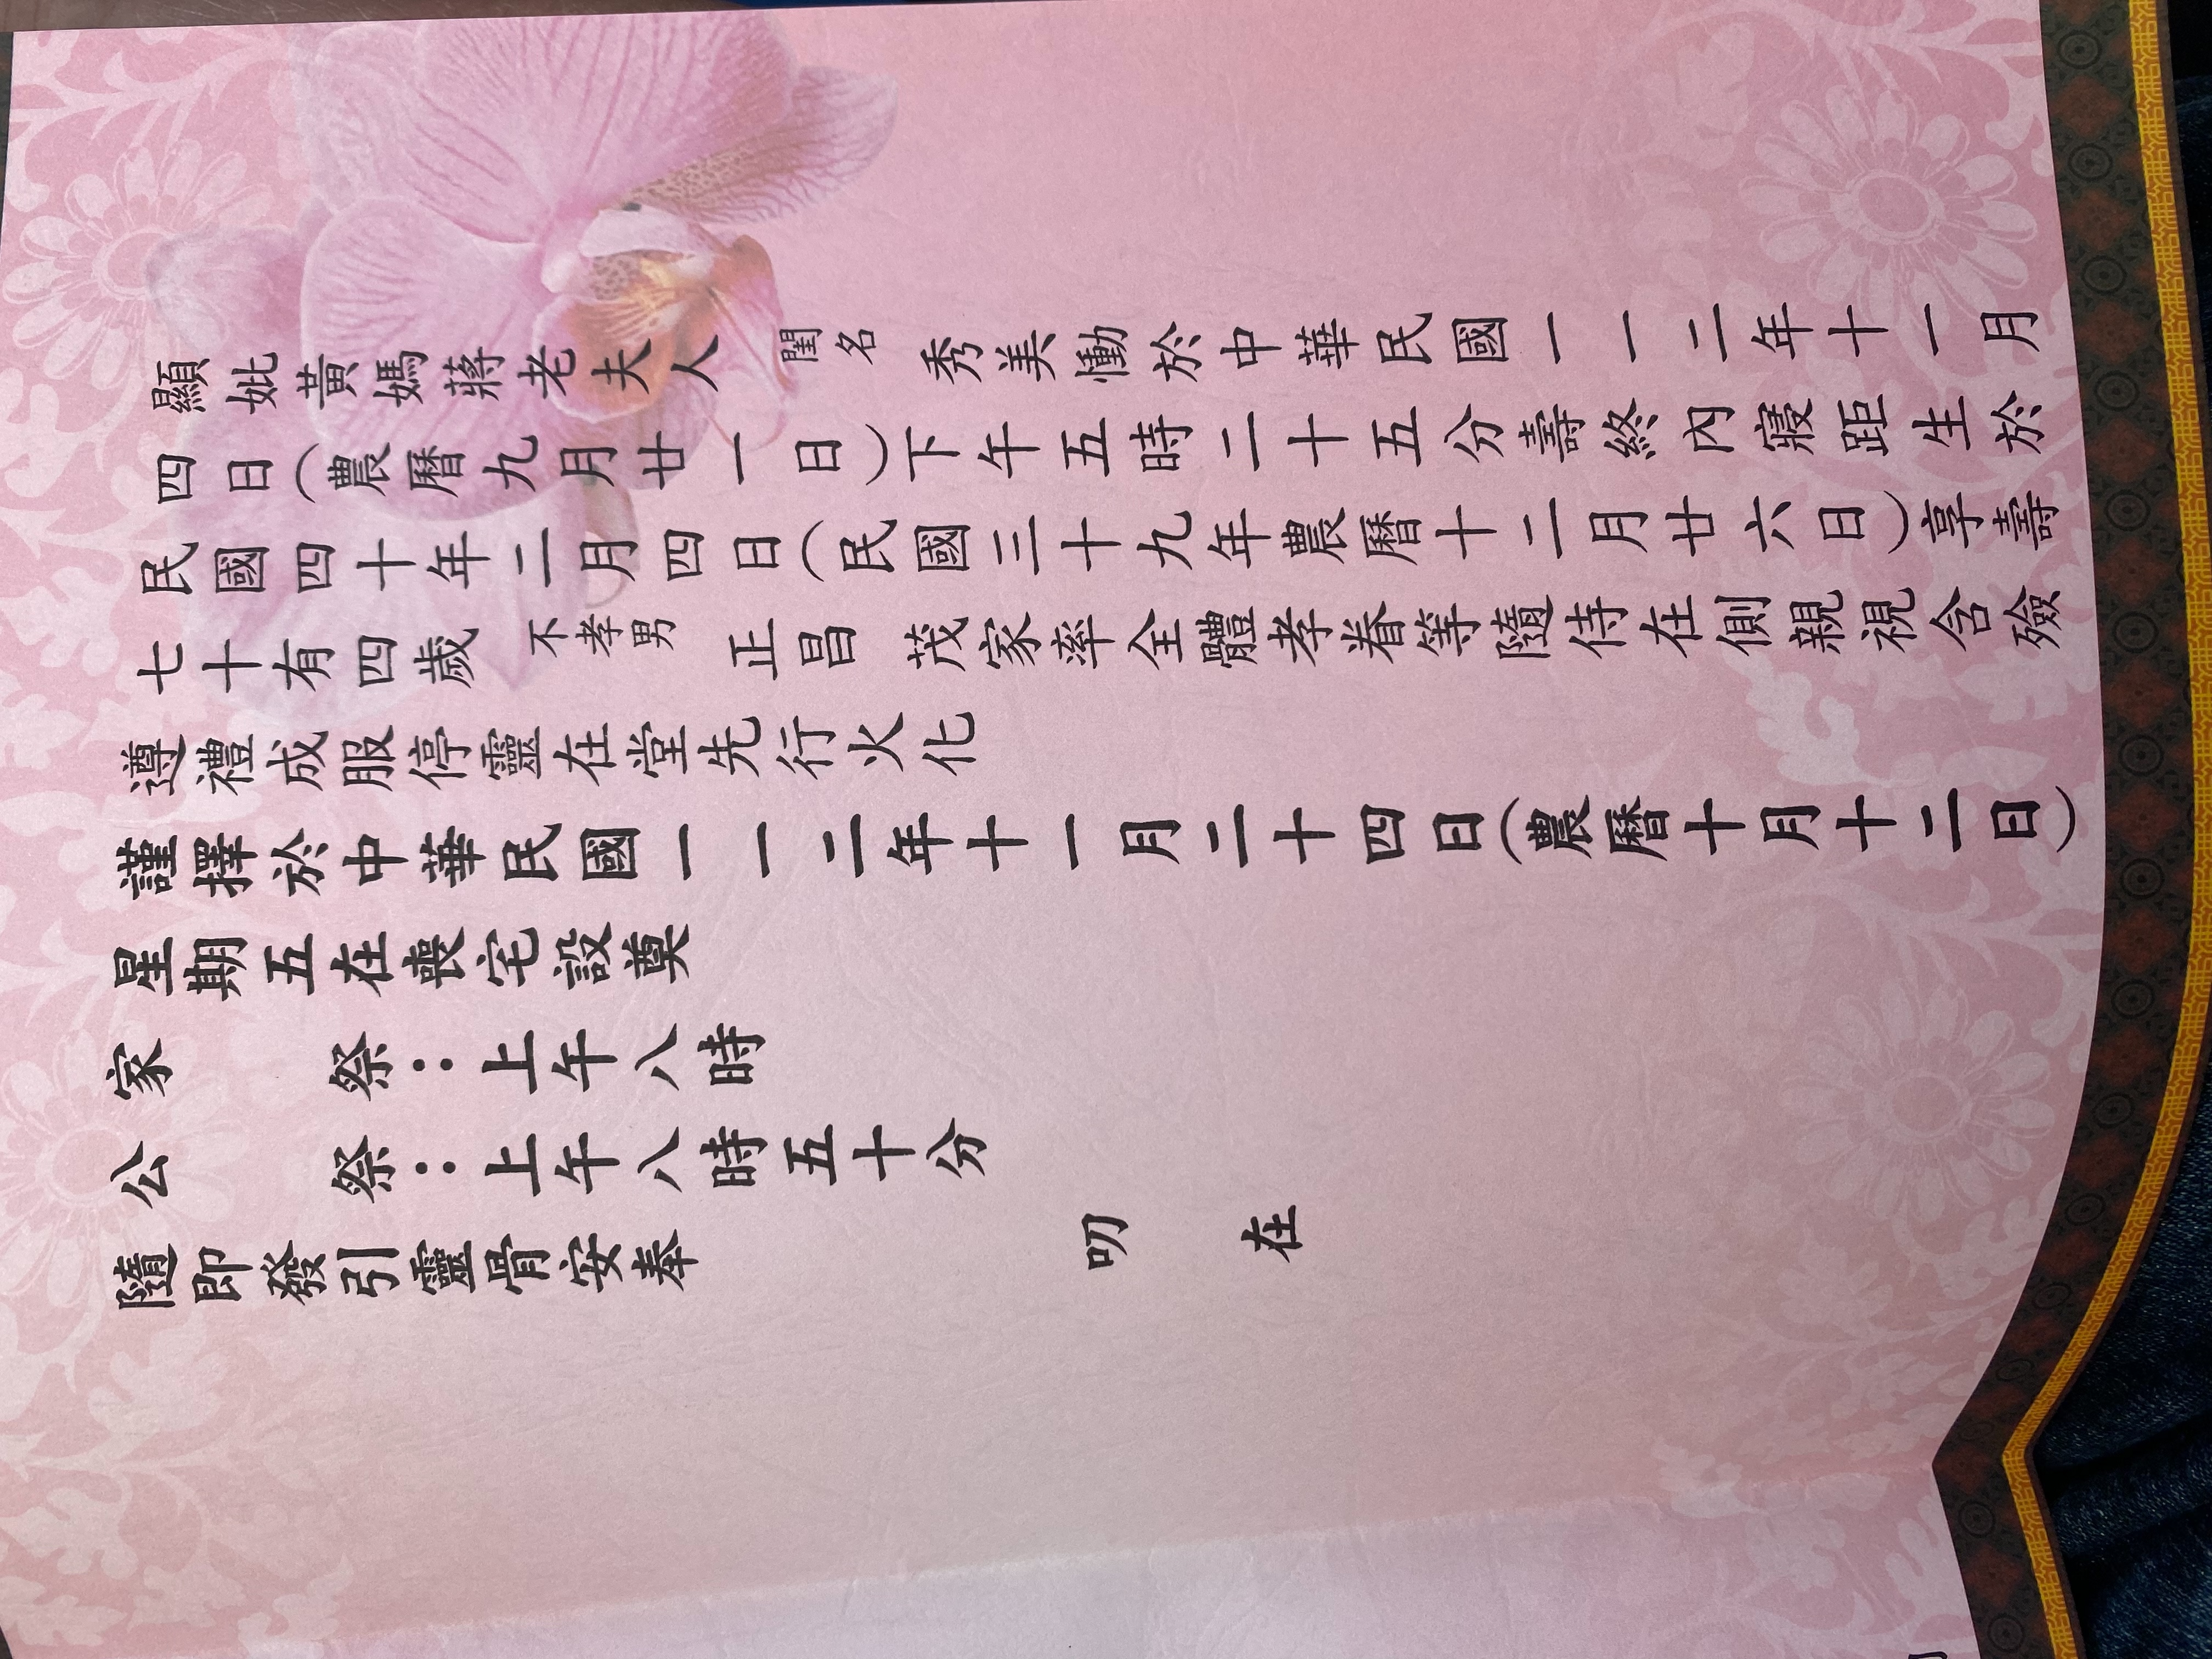 顯妣黃媽蔣老夫人閨名秀美慟於中華民國一一二年十一月
四日(農曆九月廿一日)下午五時二十五分壽終內寢距生於
民國四十年二月四日(民國三十九年農曆十二月廿六日)享壽
七十有四歲不孝男正昌茂家率全體孝眷等隨侍在側親視含殮
遵禮成服停靈在堂先行火化
謹擇於中華民國一一二年十一月二十四日(農曆十月十二日)
星期五在喪宅設奠
家 祭：上午八時
公 祭：上午八時五十分
隨即發引靈骨安奉
叨 在